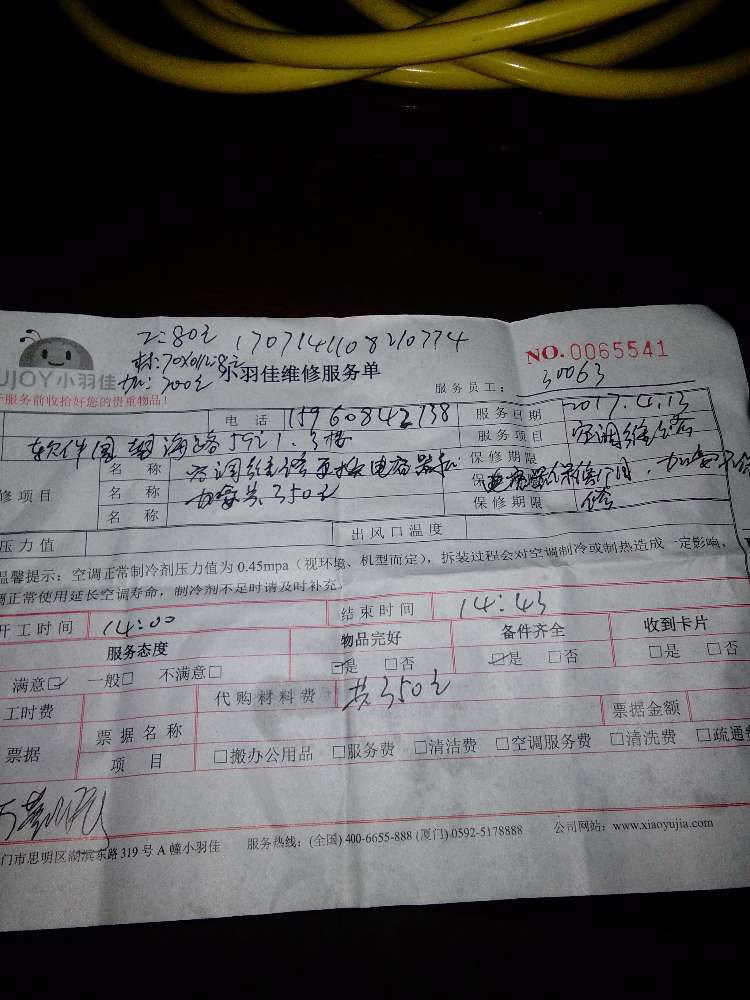 工:80元 1707141108210774
材:70X01128元
加:200元 小羽佳维修服务单
NO.0065541
UJOY小羽佳
服务员工: 30063
服务前收拾好您的贵重物品!
电话 15960842738 服务日期 2017.4.13
软件园望海路59之1.3楼 服务项目 空调维修
名称 空调维修更换电容器和 保修期限
修项目 名称 加氨共350元 保修期限
名称 保修期限 修
压力值 出风口温度
温馨提示:空调正常制冷剂压力值为0.45mpa(视环境、机型而定),拆装过程会对空调制冷或制热造成一定影响,
调正常使用延长空调寿命,制冷剂不足时请及时补充。
开工时间 14:00 结束时间 14:43
服务态度 物品完好 备件齐全 收到卡片
满意☑ 一般□ 不满意□ ☑是 □否 ☑是 □否 □是 □否
工时费 代购材料费 共350元 票据金额
票据 票据名称
项目 □搬办公用品 □服务费 □清洁费 □空调服务费 □清洗费 □疏通费
门市思明区湖滨东路319号A幢小羽佳 服务热线:(全国)400-6655-888 (厦门)0592-5178888 公司网站:www.xiaoyujia.com